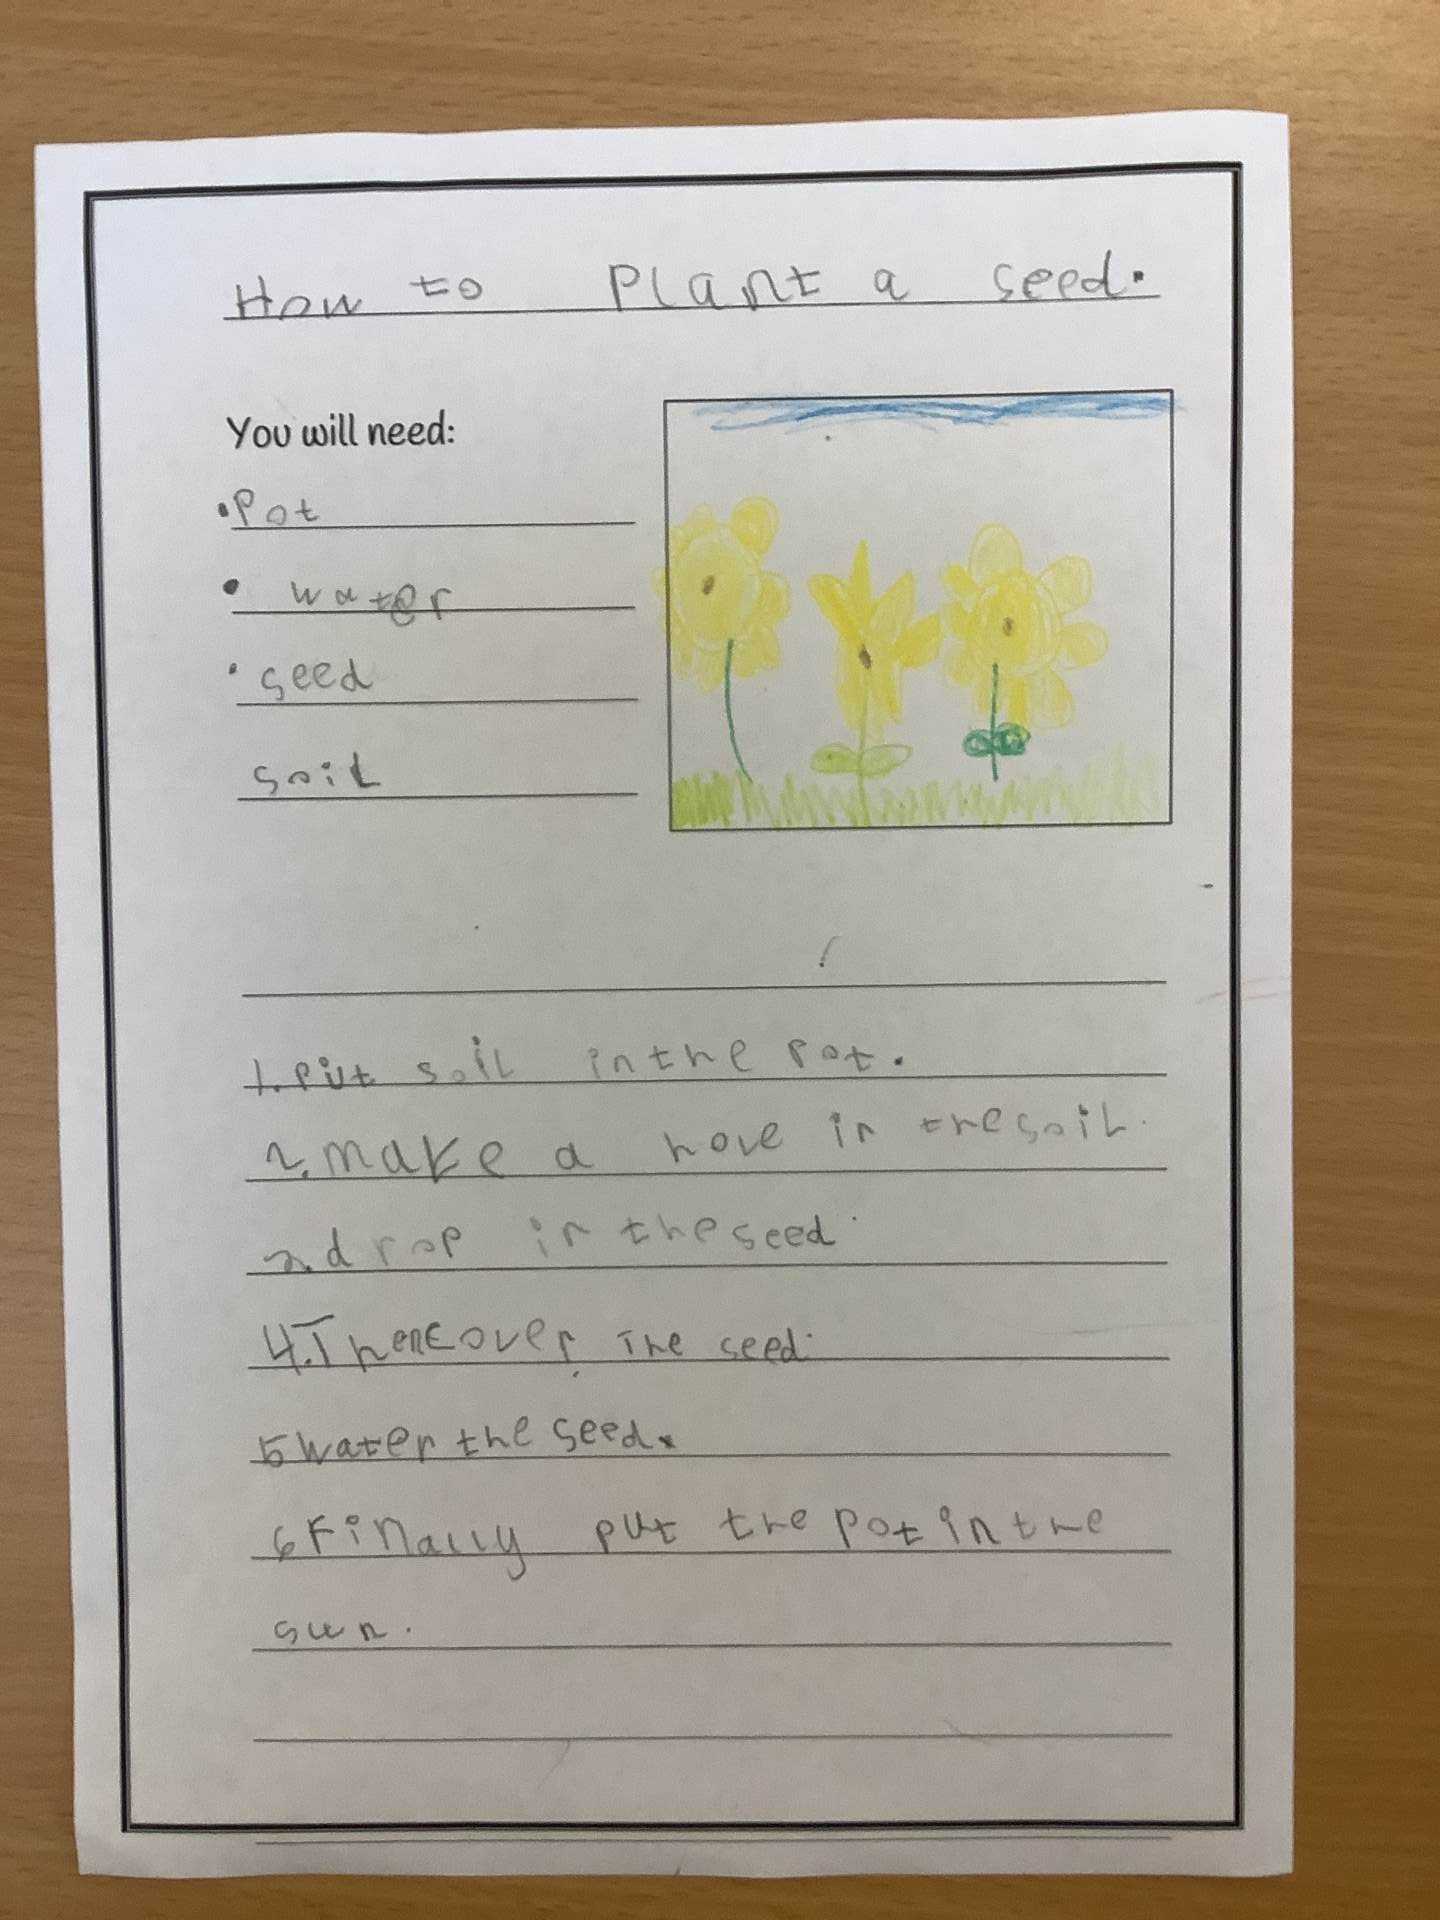 How to Plant a seed.
You will need:
• Pot
• water
• seed
soil
1. Put soil in the pot.
2. make a hole in the soil.
3. drop in the seed.
4. Then cover the seed.
5 water the seed.
6 Finally put the pot in the
sun.